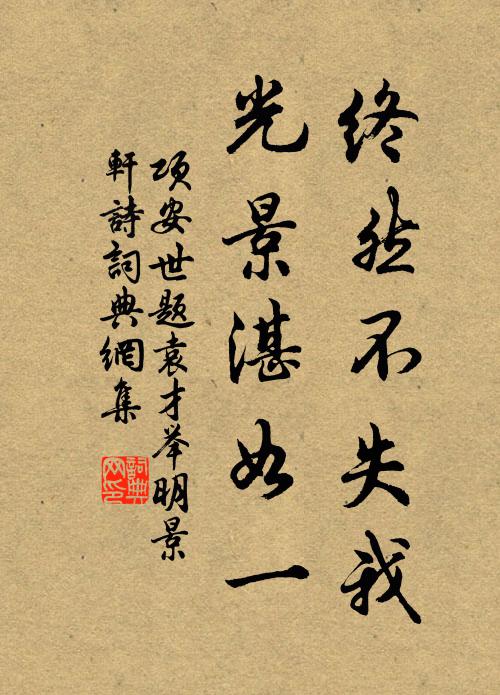 终然不失我
光景湛如一
项安世题袁才举明景
軒詩詞典網集
詞典网印